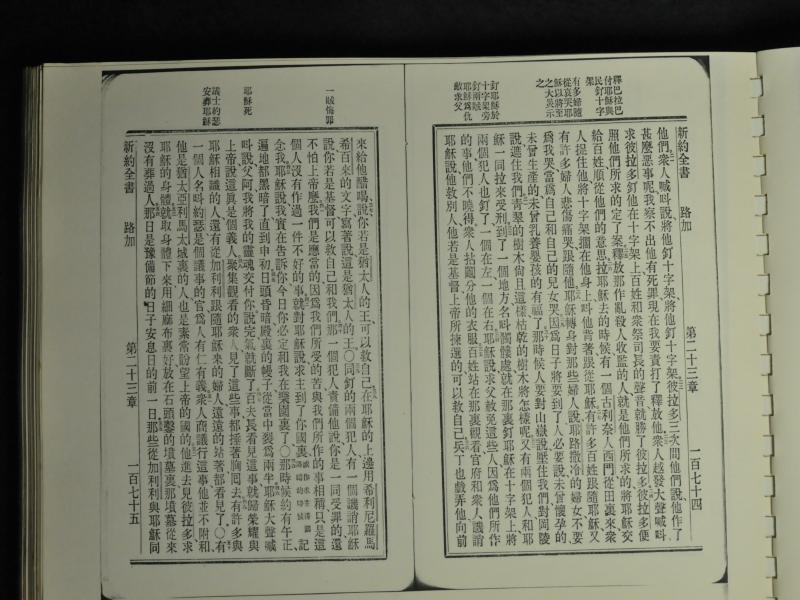 釋巴拉巴
付耶穌與
民釘十字
架
有多婦隨
從哀哭耶
穌以將至
之大災示
之
釘耶穌於
十字架旁
釘兩賊
耶穌爲仇
敵求父
新約全書 路加 第二十三章 一百七十四
他們衆人喊叫說將他釘十字架將他釘十字架彼拉多三次問他們說他作了
甚麼惡事呢我察不出他有死罪現在我要責打了釋放他衆人越發大聲喊叫
求彼拉多釘他在十字架上百姓和衆祭司長的聲音就勝了彼拉多彼拉多便
照他們所求的定了案釋放那作亂殺人收監的人就是他們所求的將耶穌交
給百姓順從他們的意思拉耶穌去的時候有一個古利奈人西門從田裏來衆
人捉住他將十字架擱在他身上叫他背著跟從耶穌有許多百姓跟隨耶穌又
有許多婦人悲傷痛哭跟隨他耶穌轉身對那些婦人說耶路撒冷的婦女不要
爲我哭當爲自己和自己的兒女哭因爲日子將要到了人必要說未曾懷孕的
未曾生產的未曾乳養嬰孩的有福了那時候人要對山嶽說壓住我們對岡陵
說遮住我們靑翠的樹木尙且這樣枯乾的樹木將怎樣呢又有兩個犯人和耶
穌一同拉來受刑到了一個地方名叫髑髏處就在那裏釘耶穌在十字架上將
兩個犯人也釘了一個在左一個在右耶穌說求父赦免這些人因爲他們所作
的事他們不曉得衆人拈鬮分他的衣服百姓站在那裏觀看官府和衆人譏誚
耶穌說他救別人他若是基督上帝所揀選的可以救自己兵丁也戲弄他向前
一賊悔罪
耶穌死
議士約瑟
安葬耶穌
來給他醋喝說你若是猶太人的王可以救自己在耶穌的上邊用希利尼羅馬
希百來的文字寫著說這是猶太人的王〇同釘的兩個犯人有一個譏誚耶穌
說你若是基督可以救自己和我們那一個犯人責備他說你是一同受罪的還
不怕上帝麼我們是應當的因爲我們所受的苦與我們所作的事相稱只是這
個人沒有作過一件不好的事就對耶穌說求主到了你國裏 記
念我耶穌說我實在告訴你今日你必定和我在樂園裏了〇那時候約有午正
遍地都黑暗了直到申初日頭昏暗殿裏的幔子從當中裂爲兩半耶穌大聲喊
叫說父阿我將我的靈魂交付你說完氣就斷了百夫長看見這事就歸榮耀與
上帝說這眞是個義人衆集觀看的衆人見了這些事都捶著胸回去有許多與
耶穌相識的人還有從加利利跟隨耶穌來的婦人遠遠的站著都看見了〇有
一個人名叫約瑟是個議事的官爲人有仁有義衆人商議行這事他並不附和
他是猶太亞利馬太城裏的人也是素常盼望上帝的國的他進去見彼拉多求
耶穌的身體就取身體下來用細麻布裹好放在石頭鑿的墳墓裏那墳墓從來
沒有葬過人那日是豫備節的日子安息日的前一日那些從加利利與耶穌同
新約全書 路加 第二十三章 一百七十五